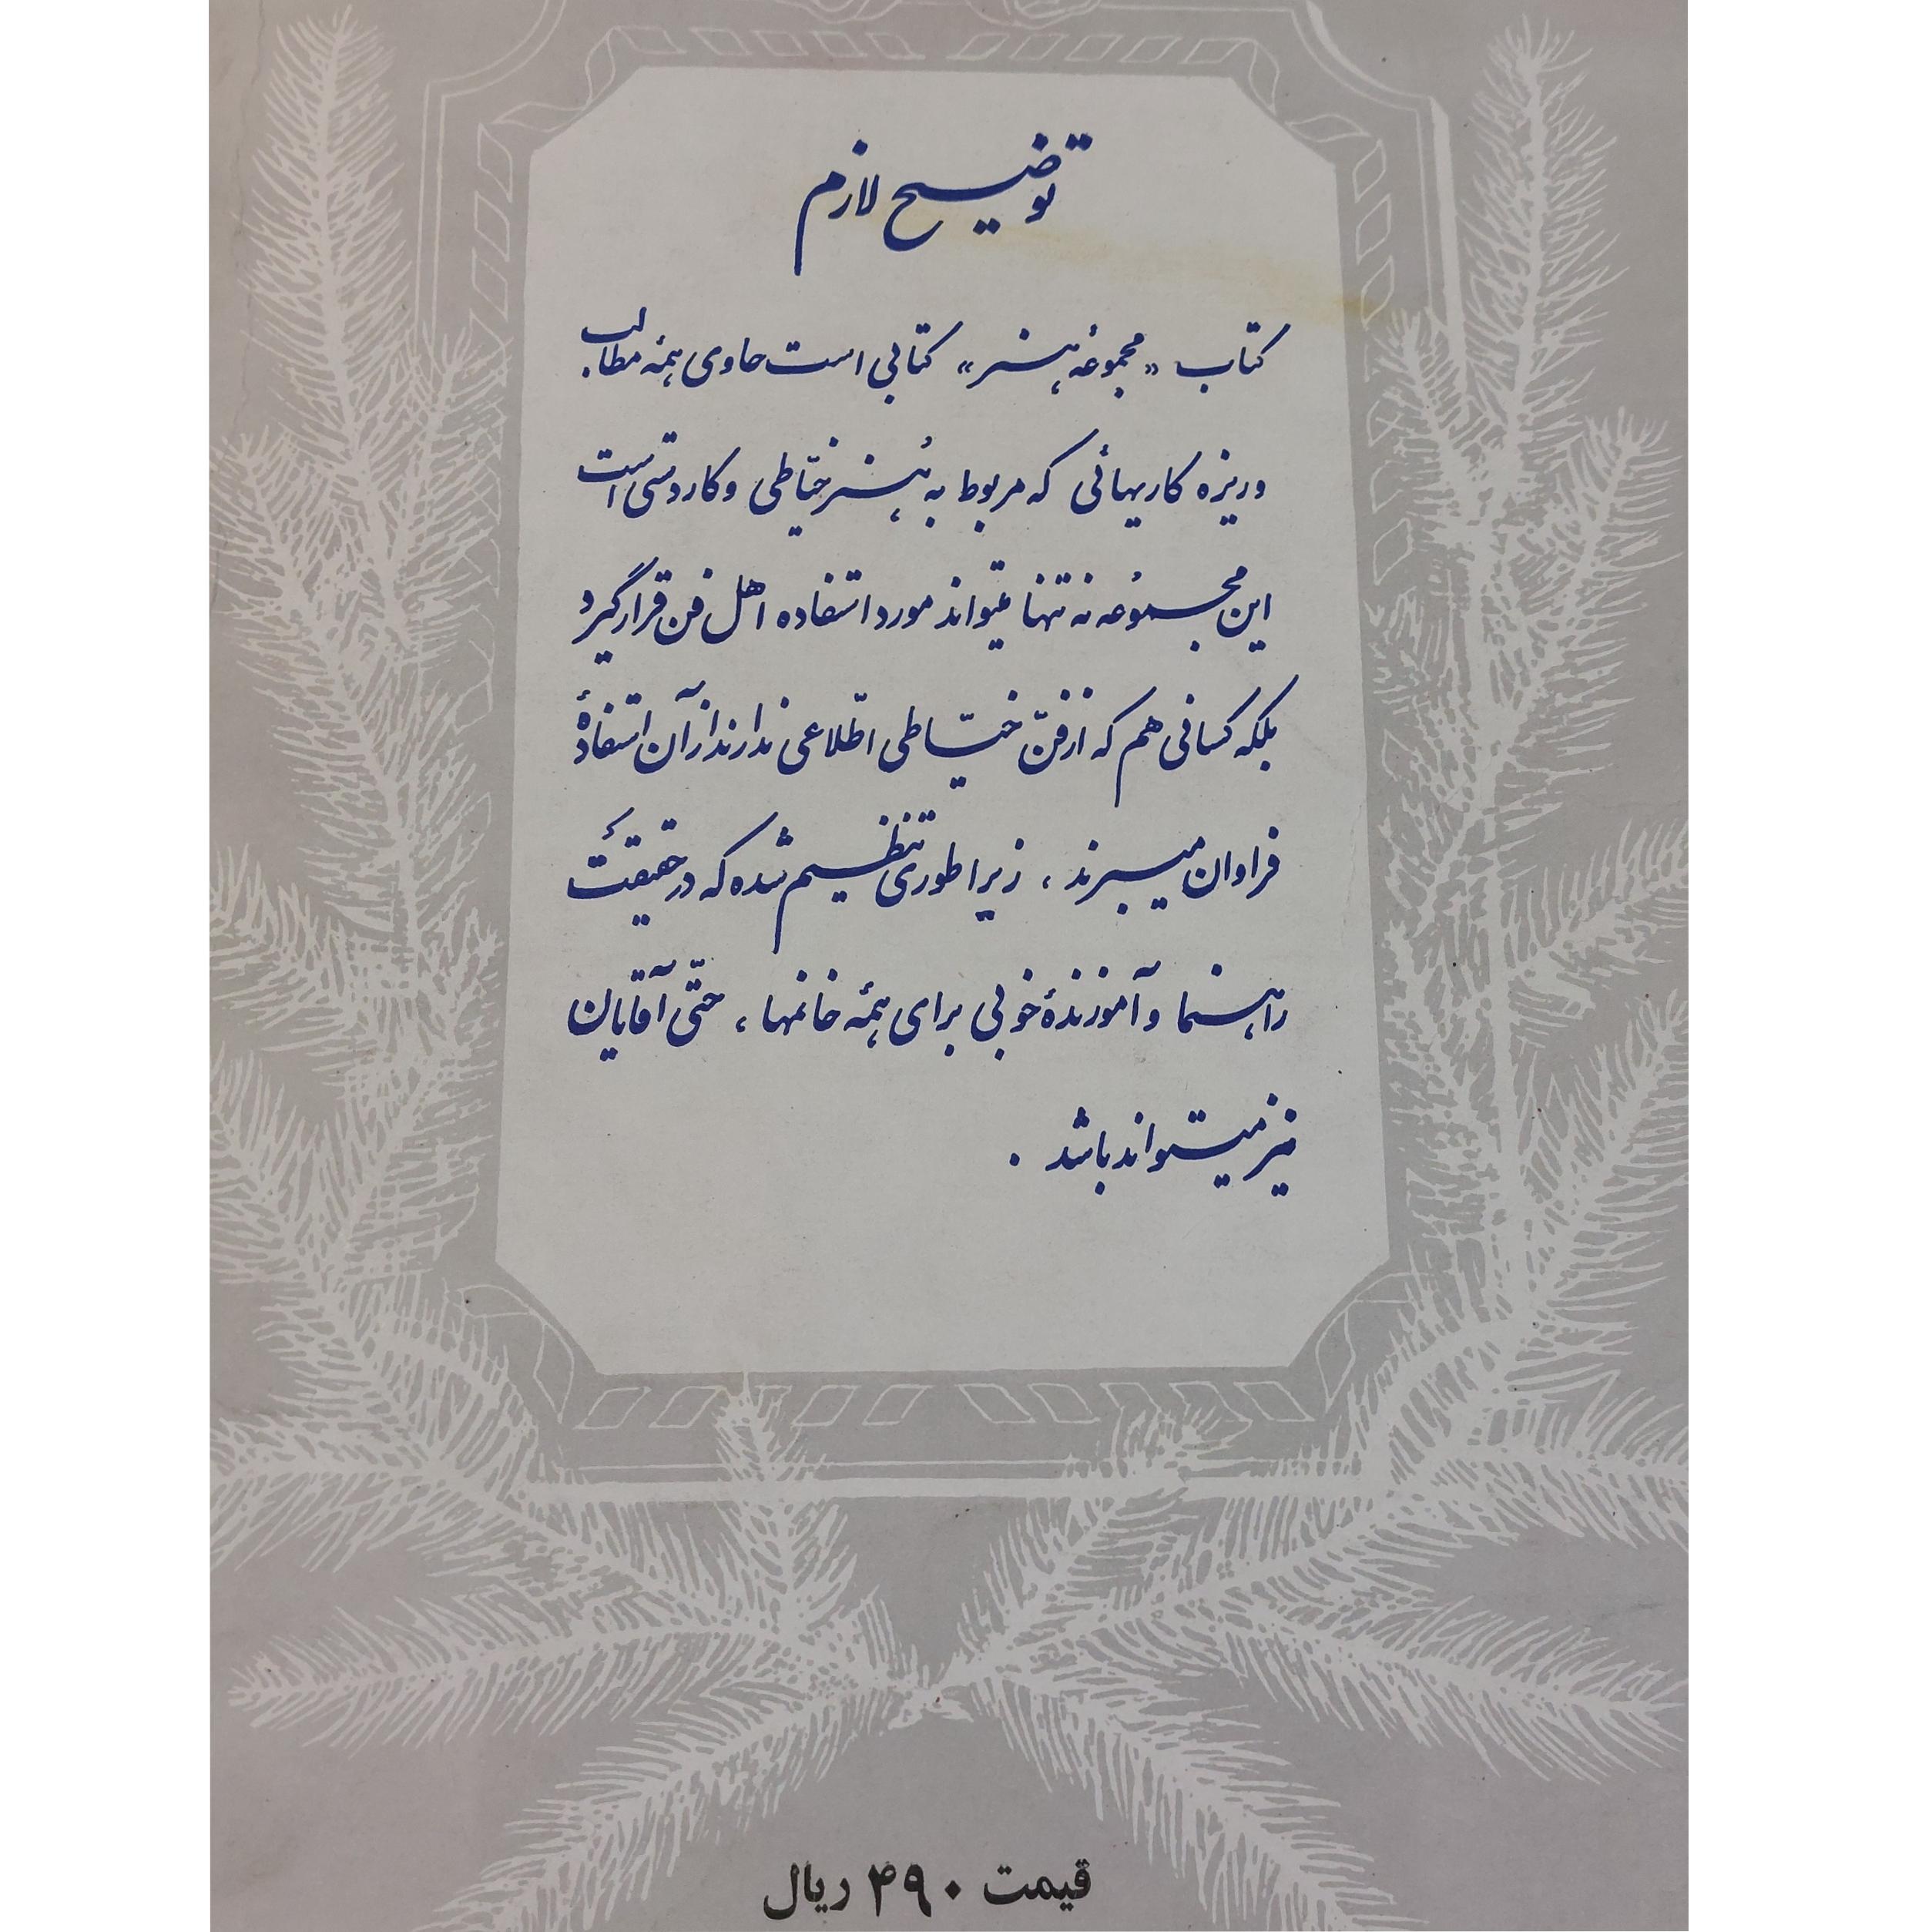 توضیح لازم
کتاب «مجموعهٔ هنر» کتابی است حاوی همهٔ مطالب
وریزه کاریهائی که مربوط به هُنر خیّاطی و کاردستی است
این مجموُعه نه تنها میتواند مورد استفاده اهل فن قرار گیرد
بلکه کسانی هم که از فنّ خیّاطی اطّلاعی ندارند از آن استفادهٔ
فراوان میبرند ، زیرا طوری تنظیم شده که در حقیقت
راهنما و آموزندهٔ خوبی برای همهٔ خانمها ، حتّی آقایان
نیز میتواند باشد .
قیمت ۴۹۰ ریال